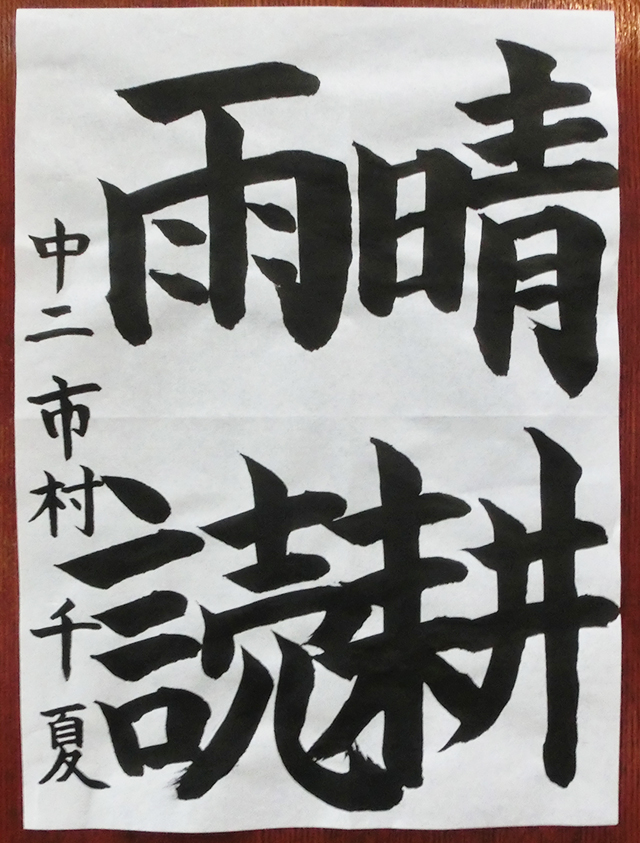 晴耕
雨読
中二 市村 千夏